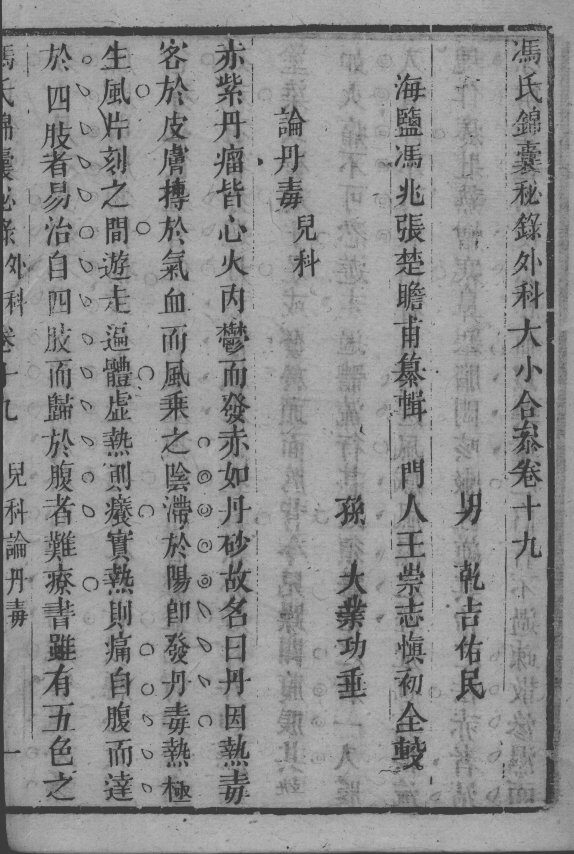 馮氏錦囊秘錄外科大小合叅卷十九
男 乾吉佑民
海鹽馮兆張楚瞻甫纂輯 門人王崇志慎初仝較
孫 大業功垂
論丹毒 兒科
赤紫丹瘤皆心火内鬱而發赤如丹砂故名曰丹因熱毒
客於皮膚摶於氣血而風乗之陰滯於陽卽發丹毒熱極
生風片刻之間遊走遍體虛熱則癢實熱則痛自腹而達
於四肢者易治自四肢而歸於腹者難療書雖有五色之
馮氏錦囊秘錄 外科卷十九 兒科論丹毒 一